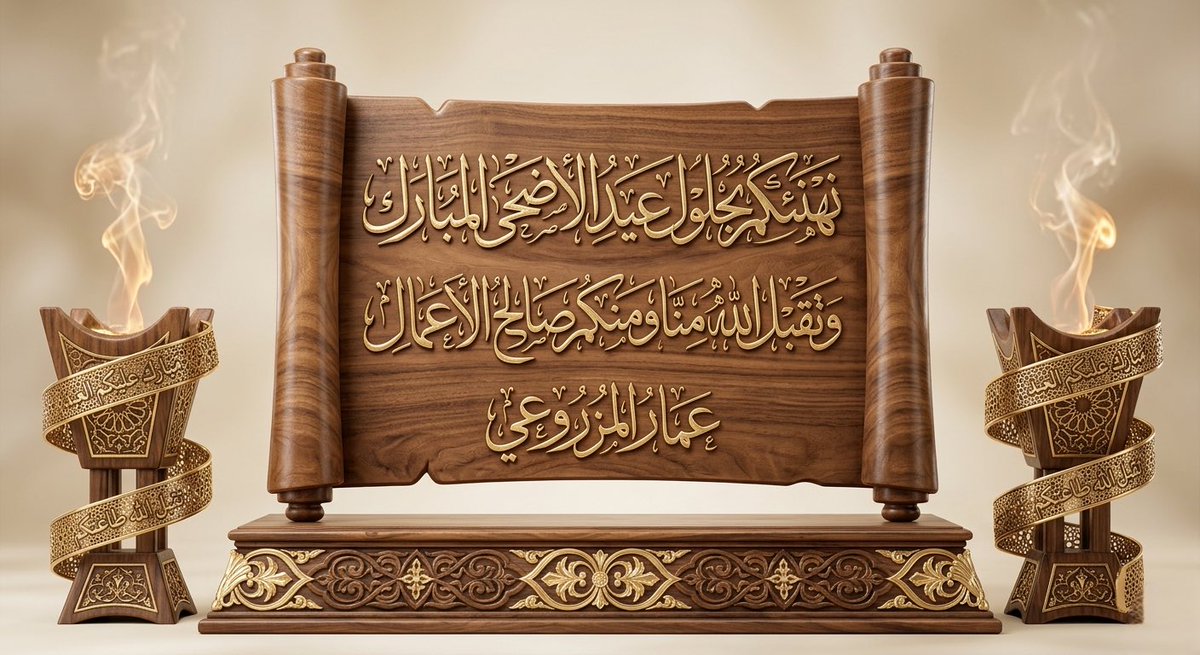 نهنئكم بحلول عيد الأضحى المبارك
وتقبل الله منا ومنكم صالح الأعمال
عمار المزروعي
مبارك عليكم
تقبل الله طاعتكم
مبارك عليكم
تقبل الله طاعتكم